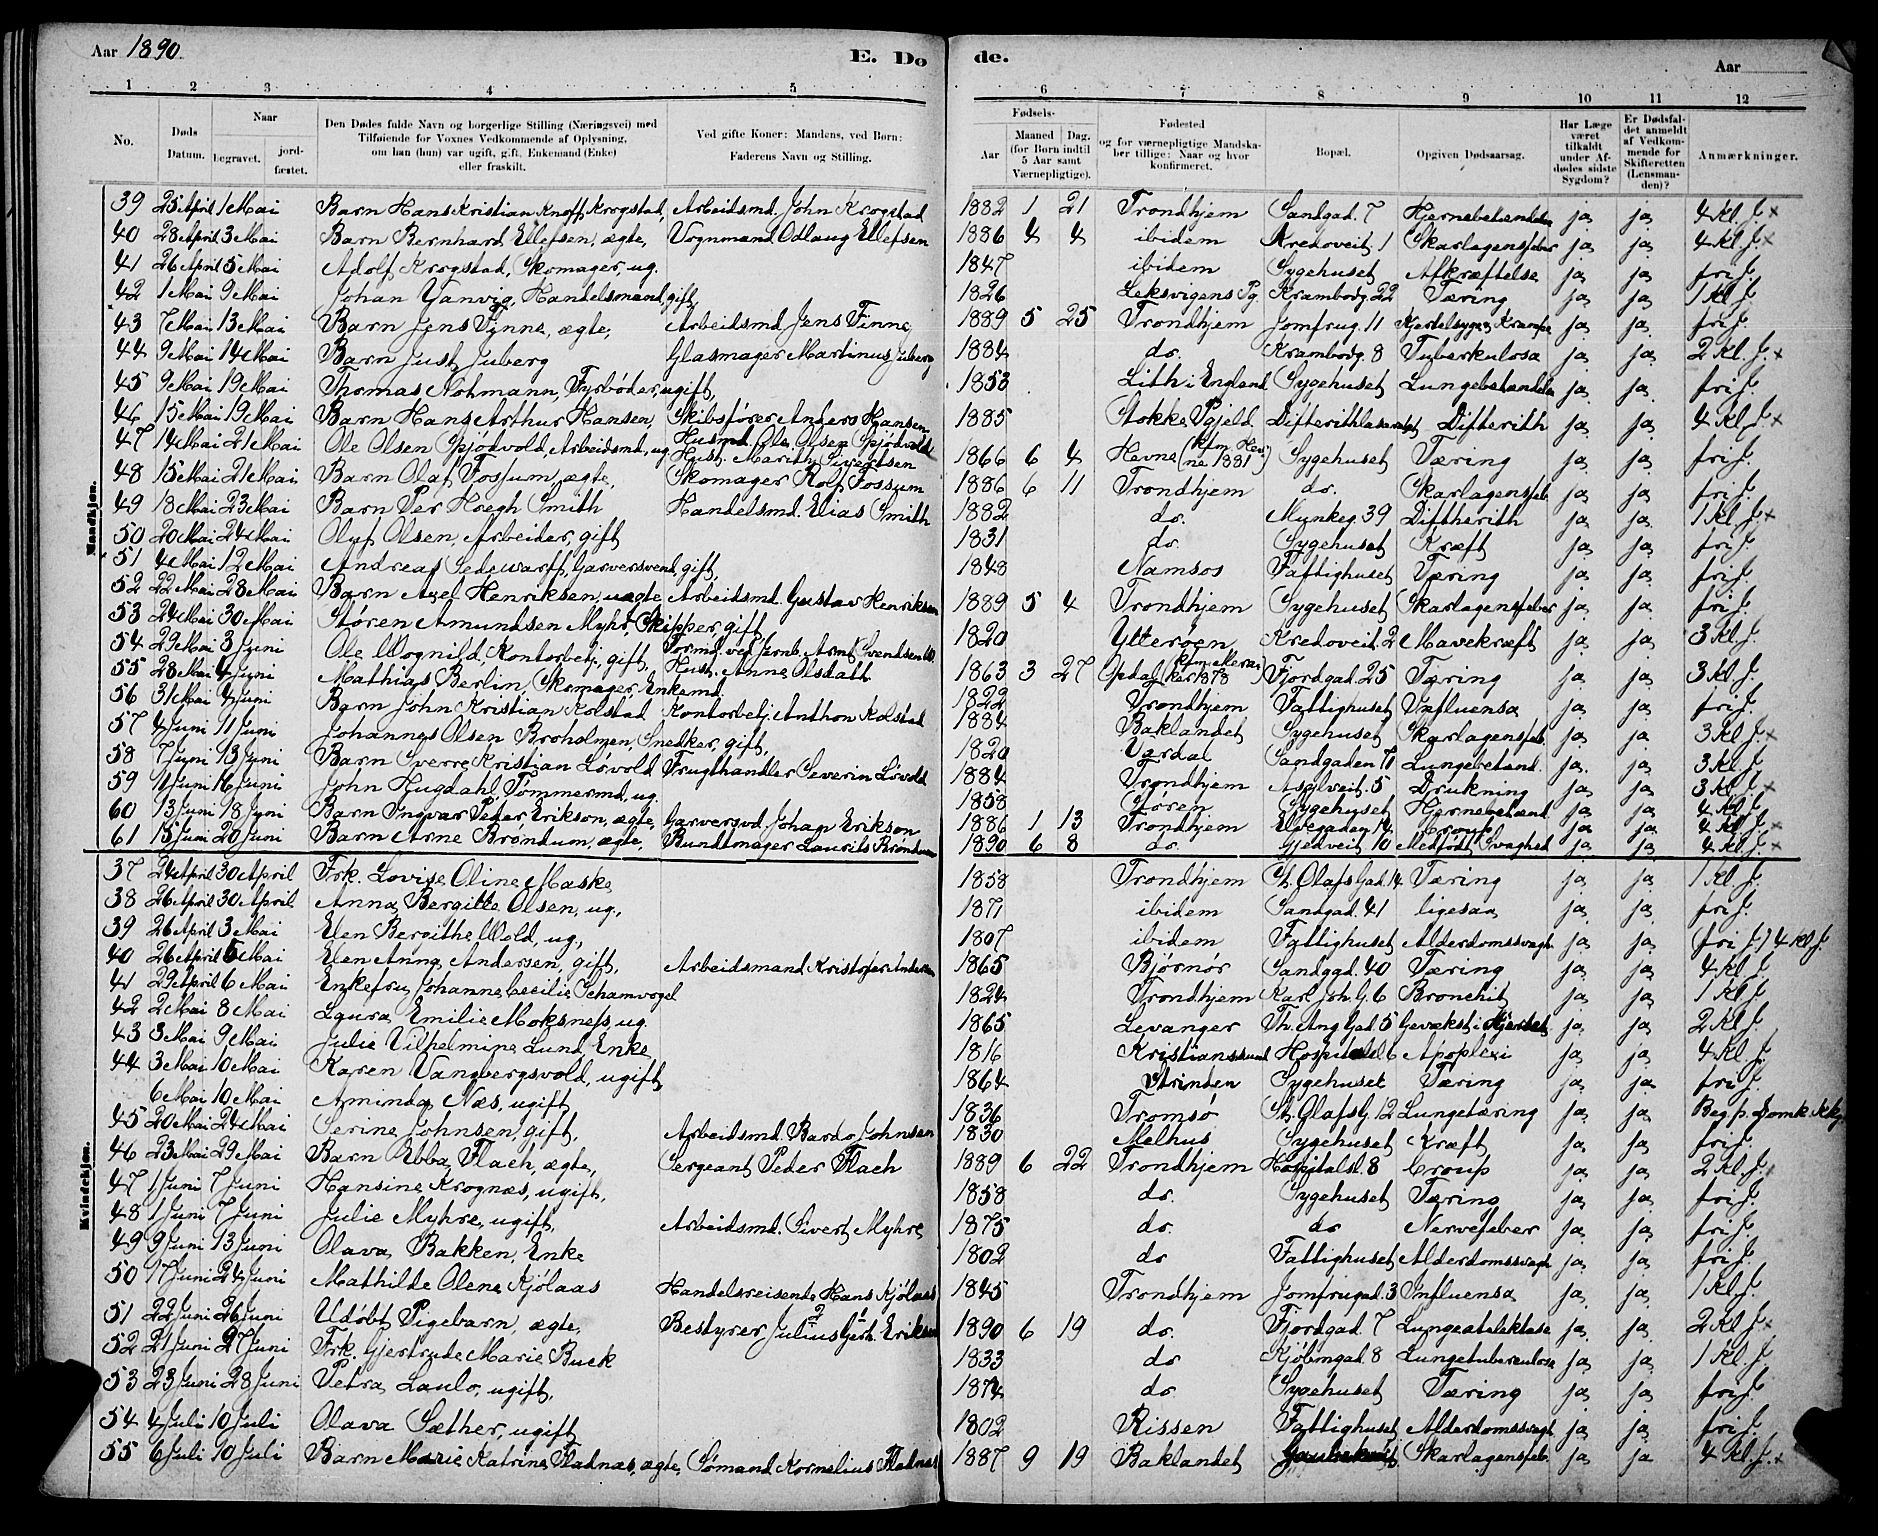 Aar 1890.
E. Do
de.
Aar
1 2 3 4 5 6 7 8 9 10 11 12
No.
Døds Datum.
Naar
begravet.
jordfæstet.
Den Dødes fulde Navn og borgerlige Stilling (Næringsvei) med Tilføiende for Voxnes Vedkommende af Oplysning, om han (hun) var ugift, gift, Enkemand (Enke) eller fraskilt.
Ved gifte Koner: Mandens, ved Børn: Faderens Navn og Stilling.
Fødsels-
Aar
Maaned Dag. (for Børn indtil 5 Aar samt Værnepligtige).
Fødested og for værnepligtige Mandskaber tillige: Naar og hvor konfirmeret.
Bopæl.
Opgiven Dødsaarsag.
Har Læge været tilkaldt under Afdødes sidste Sygdom?
Er Dødsfaldet anmeldt af Vedkommende for Skifteretten (Lensmanden)?
Anmærkninger.
Mandkjøn.
39 25 April 1 Mai Barn Hans Kristian Knoff Krogstad, Arbeidsmd. John Krogstad 1882 1 21 Trondhjem Sandgad. 7 Hjernebetændelse ja ja 4 Kl. J. ×
40 28 April 3 Mai Barn Bernhard Ellefsen, ægte, Vognmand Odlaug Ellefsen 1886 4 4 ibidem Kredoveit. 1 Skarlagensfeber ja ja 4 Kl. J. ×
41 26 April 5 Mai Adolf Krogstad, Skomager, ug. 1847 ibidem Sygehuset Afkræftelse ja ja fri J.
42 1 Mai 9 Mai Johan Vanvig, Handelsmand, gift, 1826 Leksvigens Pg. Krambodg. 22 Tæring ja ja 1 Kl. J.
43 7 Mai 13 Mai Barn Jens Finne, ægte, Arbeidsmd. Jens Finne 1889 5 25 Trondhjem Jomfrug. 11 Krampe ja ja fri J.
44 9 Mai 14 Mai Barn Just Juberg Glasmager Martinus Juberg 1884 do. Krambodg. 8 Tuberkulosa ja ja 2 Kl. J. ×
45 9 Mai 19 Mai Thomas Nohmann, Fyrbøder, ugift, 1853 Lith i England Sygehuset Lungebetændelse ja ja fri J.
46 15 Mai 19 Mai Barn Hans Arthur Hansen, Skibsfører Anders Hansen 1885 Stokke Pgjeld Difterithlasarettet Difterith ja ja 4 Kl. J. ×
47 14 Mai 21 Mai Ole Olsen Spjødvold, Arbeidsmd, ug. Husmd. Ole Olsen Spjødvold Hust. Marith Sivertsen 1866 6 4 Hevne (kfm. Hevne 1881) Sygehuset Tæring ja ja fri J.
48 15 Mai 21 Mai Barn Olaf Fossum, ægte, Skomager Rolf Fossum 1886 6 11 Trondhjem do. Skarlagensfeb. ja ja fri J.
49 18 Mai 23 Mai Barn Per Høegh Smith Handelsmd. Elias Smith 1882 do. Munkeg. 39 Diftherith ja ja 1 Kl. J. ×
50 20 Mai 24 Mai Oluf Olsen, Arbeider, gift 1831 do. Sygehuset Kræft ja ja fri J.
51 4 Mai 12 Mai Andreas Sedewarff, Garversvend, gift, 1848 Namsos Fattighuset Tæring ja ja fri J.
52 22 Mai 28 Mai Barn Axel Henriksen, uægte, Arbeidsmd. Gustav Henriksen 1889 5 4 Trondhjem Sygehuset Skarlagensfeber ja ja fri J.
53 24 Mai 30 Mai Støren Amundsen Myhr, Skipper, gift, 1820 Ytterøen Kredoveit. 2 Mavekræft ja ja 3 Kl. J.
54 29 Mai 3 Juni Ole Wognild, Kontorbetj., gift, Formd. ved Jernb. Arnt Svendsen W. Hust. Anne Olsdatt 1863 3 27 Opdal Fjordgad. 25 Tæring ja ja 3 Kl. J.
55 28 Mai 4 Juni Mathias Berlin, Skomager, Enkemd. 1822 Trondhjem Fattighuset Influensa ja ja fri J.
56 31 Mai 4 Juni Barn John Kristian Kolstad Kontorbetj. Anthon Kolstad 1884 Baklandet Sygehuset Skarlagensfeb. ja ja 3 Kl. J. ×
57 4 Juni 11 Juni Johannes Olsen Broholmen, Snedker, gift, 1820 Værdal Sandgaden 71 Lungebetænd. ja ja 3 Kl. J.
58 7 Juni 13 Juni Barn Sverre Kristian Løvold Frugthandler Severin Løvold 1884 Trondhjem Asylveit. 5 Drukning ja ja 3 Kl. J. ×
59 11 Juni 16 Juni John Hugdahl, Tømmermd, ug. 1858 Støren Sygehuset Hjernebetænd. ja ja 4 Kl. J.
60 13 Juni 18 Juni Barn Ingvar Peder Erikson, ægte, Garversvd. Johan Erikson 1886 1 13 Trondhjem Elvegaden 14 Croup ja ja 4 Kl. J. ×
61 15 Juni 20 Juni Barn Arne Brøndum, ægte, Bundtmager Laurits Brøndum 1890 6 8 do. Gjedveit. 10 Medfødt Svaghed ja ja 4 Kl. J. ×
Kvindekjøn.
37 24 April 30 April Frk. Lovise Oline Maske 1858 Trondhjem St. Olafs Gad. 14 Tæring ja ja 1 Kl. J.
38 26 April 30 April Anna Bergitte Olsen, ug., 1871 ibidem Sandgad. 41 ligesaa ja ja fri J.
39 26 April 3 Mai Elen Bergithe Wold, ug, 1807 ibidem Fattighuset Alderdomssvagh. ja ja (fri J.) 4 Kl. J.
40 26 April 5 Mai Elen Anna Andersen, gift, Arbeidsmand Kristofer Andersen 1865 Bjørnør Sandgd. 40 Tæring ja ja 4 Kl. J.
41 29 April 6 Mai Enkefru Johanne Cecilie Schamvogel 1824 Trondhjem Karl Joh. G. 6 Bronchit ja ja 1 Kl. J.
42 2 Mai 8 Mai Laura Emilie Moksness, ug. 1865 Levanger Th. Ang. Gad. 5 Gevækst i Hjertet ja ja 2 Kl. J.
43 3 Mai 9 Mai Julie Vilhelmine Lund, Enke 1816 Kristianssund Hospitalsl. 6 Apoplexi ja ja 4 Kl. J.
44 3 Mai 10 Mai Karen Vangbergsvold, ugift, 1864 Strinden Sygehuset Tæring ja ja fri J.
6 Mai 10 Mai Aminda Næs, ugift 1836 Tromsø St. Olafs G. 12 Lungetæring ja ja Beg. p. Domk. Kkg.
45 20 Mai 24 Mai Serine Johnsen, gift, Arbeidsmd. Bardo Johnsen 1830 Melhus Sygehuset Kræft ja ja fri J.
46 23 Mai 29 Mai Barn Ebba Flach, ægte, Sergeant Peder Flach 1889 6 22 Trondhjem Hospitalsl. 8 Croup ja ja 2 Kl. J. ×
47 1 Juni 7 Juni Hansine Krognæs, ugift, 1858 do. Sygehuset Tæring ja ja fri J.
48 1 Juni 7 Juni Julie Myhre, ugift, Arbeidsmd. Sivert Myhre 1875 do. do Nervefeber ja ja fri J.
49 9 Juni 13 Juni Olava Bakken, Enke 1802 do Fattighuset Alderdomssvagh ja ja fri J.
50 17 Juni 24 Juni Mathilde Olene Kjølaas Handelsreisende Hans Kjølaas 1845 Trondhjem Jomfrugad. 3 Influensa ja ja 1 Kl. J.
51 22 Juni 26 Juni Udøbt Pigebarn, ægte, Bestyrer Julius Gjert. Eriksen 1890 6 19 do. Fjordgad. 7 Lungeatelektase ja ja 2 Kl. J. ×
52 21 Juni 27 Juni Frk. Gjertrude Marie Buck 1833 do Kjøbmgad. 8 Lungetuberculosa ja ja 1 Kl. J.
53 23 Juni 28 Juni Petra Laulo, ugift, 1874 do. Sygehuset Tæring ja ja fri J.
54 4 Juli 10 Juli Olava Sæther, ugift 1802 Rissen Fattighuset Alderdomssvagt ja ja fri J.
55 6 Juli 10 Juli Barn Marie Katrine Fladnæs, ægte, Sømand Kornelius Fladnæs 1887 9 19 Baklandet Skarlagensfeb. ja ja 4 Kl. J. ×